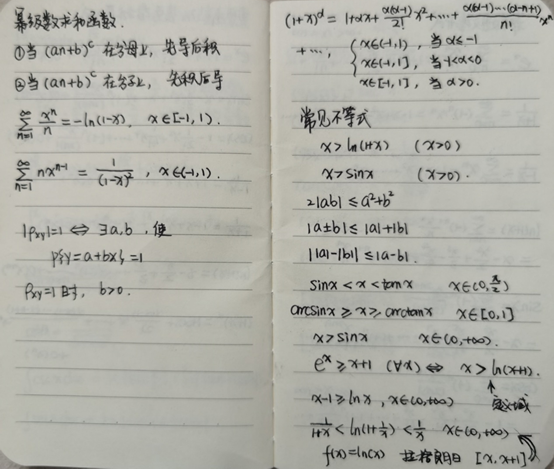 幂级数求和函数.
①当 (an+b)^c 在分母上, 先导后积
②当 (an+b)^c 在分子上, 先积后导
∑_{n=1}^{∞} x^n/n = -ln(1-x), x∈[-1,1).
∑_{n=1}^{∞} nx^{n-1} = 1/(1-x)^2, x∈(-1,1).
|ρ_{xy}|=1 ⇔ ∃a,b, 使
P{Y=a+bX}=1
ρ_{xy}=1时, b>0.
(1+x)^α = 1+αx+ α(α-1)/2! x^2+⋯+ α(α-1)⋯(α-n+1)/n! x^n
+⋯, { x∈(-1,1), 当 α≤-1
x∈(-1,1], 当 -1<α<0
x∈[-1,1], 当 α>0.
常见不等式
x>ln(1+x) (x>0)
x>sinx (x>0).
2|ab|≤a^2+b^2
|a±b|≤|a|+|b|
||a|-|b||≤|a-b|.
sinx<x<tanx x∈(0,π/2)
arcsinx≥x≥arctanx x∈[0,1]
x>sinx x∈(0,+∞).
e^x≥x+1 (∀x) ⇔ x>ln(x+1).
定义域
x-1≥lnx, x∈(0,+∞)
1/(1+x)<ln(1+1/x)<1/x x∈(0,+∞)
f(x)=ln(x) 拉格朗日 [x,x+1]